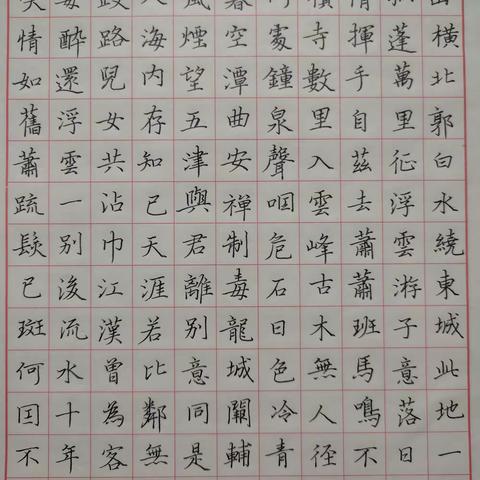 山橫北郭白水繞東城此地一
蓬萬里征浮雲游子意落日
情揮手自茲去蕭蕭班馬鳴不
寺數里入雲峰古木無人徑
何處鐘泉聲咽危石日色冷青
暮空潭曲安禪制毒龍城闕輔
風煙望五津與君離別意同是
人海內存知已天涯若比鄰無
歧路兒女共沾巾江漢曾為客
每醉還浮雲一別後流水十年
笑情如舊蕭疏鬢已斑何囙不